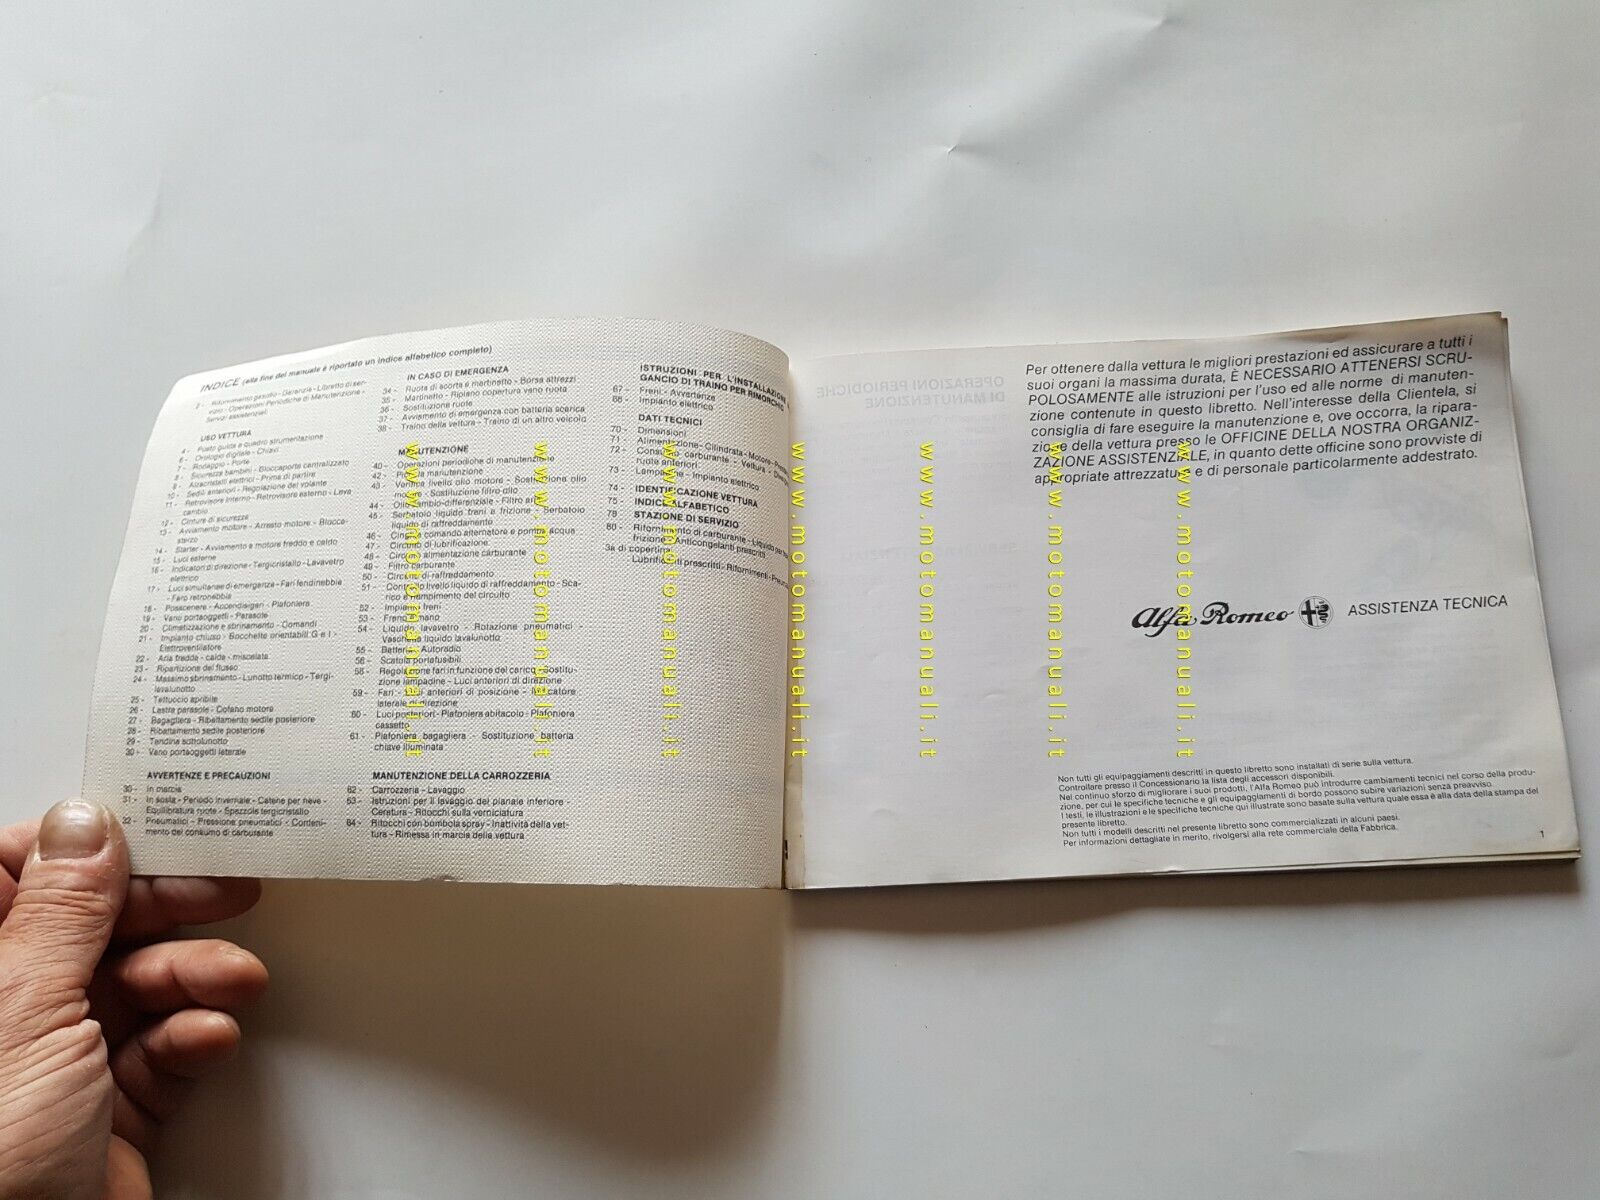 INDICE (alla fine del manuale è riportato un indice alfabetico completo)
2 - Rifornimento gasolio - Garanzia - Libretto di ser-
vizio - Operazioni Periodiche di Manutenzione -
Servizi assistenziali
USO VETTURA
4 - Posto guida e quadro strumentazione
6 - Orologio digitale - Chiavi
7 - Rodaggio - Porte
8 - Sicurezza bambini - Bloccaporte centralizzato
9 - Alzacristalli elettrici - Prima di partire
10 - Sedili anteriori - Regolazione del volante
11 - Retrovisore interno - Retrovisore esterno - Leva
cambio
12 - Cinture di sicurezza
13 - Avviamento motore - Arresto motore - Blocca-
sterzo
14 - Starter - Avviamento a motore freddo e caldo
15 - Luci esterne
16 - Indicatori di direzione - Tergicristallo - Lavavetro
elettrico
17 - Luci simultanee di emergenza - Fari fendinebbia
- Faro retronebbia
18 - Posacenere - Accendisigari - Plafoniera
19 - Vano portaoggetti - Parasole
20 - Climatizzazione e sbrinamento - Comandi
21 - Impianto chiuso - Bocchette orientabili G e I -
Elettroventilatore
22 - Aria fredda - calda - miscelata
23 - Ripartizione del flusso
24 - Massimo sbrinamento - Lunotto termico - Tergi-
lavalunotto
25 - Tettuccio apribile
26 - Lastra parasole - Cofano motore
27 - Bagagliera - Ribaltamento sedile posteriore
28 - Ribaltamento sedile posteriore
29 - Tendina sottolunotto
30 - Vano portaoggetti laterale
AVVERTENZE E PRECAUZIONI
30 - In marcia
31 - In sosta - Periodo invernale - Catene per neve -
Equilibratura ruote - Spazzole tergicristallo
32 - Pneumatici - Pressione pneumatici - Conteni-
mento del consumo di carburante
IN CASO DI EMERGENZA
34 - Ruota di scorta e martinetto - Borsa attrezzi
35 - Martinetto - Ripiano copertura vano ruota
36 - Sostituzione ruote
37 - Avviamento di emergenza con batteria scarica
38 - Traino della vettura - Traino di un altro veicolo
MANUTENZIONE
40 - Operazioni periodiche di manutenzione
42 - Piccola manutenzione
43 - Verifica livello olio motore - Sostituzione olio
motore - Sostituzione filtro olio
44 - Olio cambio-differenziale - Filtro aria
45 - Serbatoio liquido freni e frizione - Serbatoio
liquido di raffreddamento
46 - Cinghia comando alternatore e pompa acqua
47 - Circuito di lubrificazione
48 - Circuito alimentazione carburante
49 - Filtro carburante
50 - Circuito di raffreddamento
51 - Controllo livello liquido di raffreddamento - Sca-
rico e riempimento del circuito
52 - Impianto freni
53 - Freno a mano
54 - Liquido lavavetro - Rotazione pneumatici -
Vaschetta liquido lavalunotto
55 - Batteria - Autoradio
56 - Scatola portafusibili
58 - Regolazione fari in funzione del carico - Sostitu-
zione lampadine - Luci anteriori di direzione
59 - Fari - Luci anteriori di posizione - Indicatore
laterale di direzione
60 - Luci posteriori - Plafoniera abitacolo - Plafoniera
cassetto
61 - Plafoniera bagagliera - Sostituzione batteria
chiave illuminata
MANUTENZIONE DELLA CARROZZERIA
62 - Carrozzeria - Lavaggio
63 - Istruzioni per il lavaggio del pianale inferiore -
Ceratura - Ritocchi sulla verniciatura
64 - Ritocchi con bombola spray - Inattività della vet-
tura - Rimessa in marcia della vettura
ISTRUZIONI PER L'INSTALLAZIONE
GANCIO DI TRAINO PER RIMORCHIO
67 - Freni - Avvertenze
68 - Impianto elettrico
DATI TECNICI
70 - Dimensioni
71 - Alimentazione - Cilindrata - Motore
72 - Consumo carburante - Vettura
ruote anteriori
73 - Lampadine - Impianto elettrico
74 - IDENTIFICAZIONE VETTURA
75 - INDICE ALFABETICO
79 - STAZIONE DI SERVIZIO
80 - Rifornimento di carburante - Liquido
frizione - Anticongelanti prescritti
3a di copertina:
Lubrificanti prescritti - Rifornimenti
Per ottenere dalla vettura le migliori prestazioni ed assicurare a tutti i
suoi organi la massima durata, È NECESSARIO ATTENERSI SCRU-
POLOSAMENTE alle istruzioni per l'uso ed alle norme di manuten-
zione contenute in questo libretto. Nell'interesse della Clientela, si
consiglia di fare eseguire la manutenzione e, ove occorra, la ripara-
zione della vettura presso le OFFICINE DELLA NOSTRA ORGANIZ-
ZAZIONE ASSISTENZIALE, in quanto dette officine sono provviste di
appropriate attrezzature e di personale particolarmente addestrato.
Alfa Romeo ASSISTENZA TECNICA
Non tutti gli equipaggiamenti descritti in questo libretto sono installati di serie sulla vettura.
Controllare presso il Concessionario la lista degli accessori disponibili.
Nel continuo sforzo di migliorare i suoi prodotti, l'Alfa Romeo può introdurre cambiamenti tecnici nel corso della produ-
zione, per cui le specifiche tecniche e gli equipaggiamenti di bordo possono subire variazioni senza preavviso.
I testi, le illustrazioni e le specifiche tecniche qui illustrate sono basate sulla vettura quale essa è alla data della stampa del
presente libretto.
Non tutti i modelli descritti nel presente libretto sono commercializzati in alcuni paesi.
Per informazioni dettagliate in merito, rivolgersi alla rete commerciale della Fabbrica.
1
www.motomanuali.it
www.motomanuali.it
www.motomanuali.it
www.motomanuali.it
www.motomanuali.it
www.motomanuali.it
www.motomanuali.it